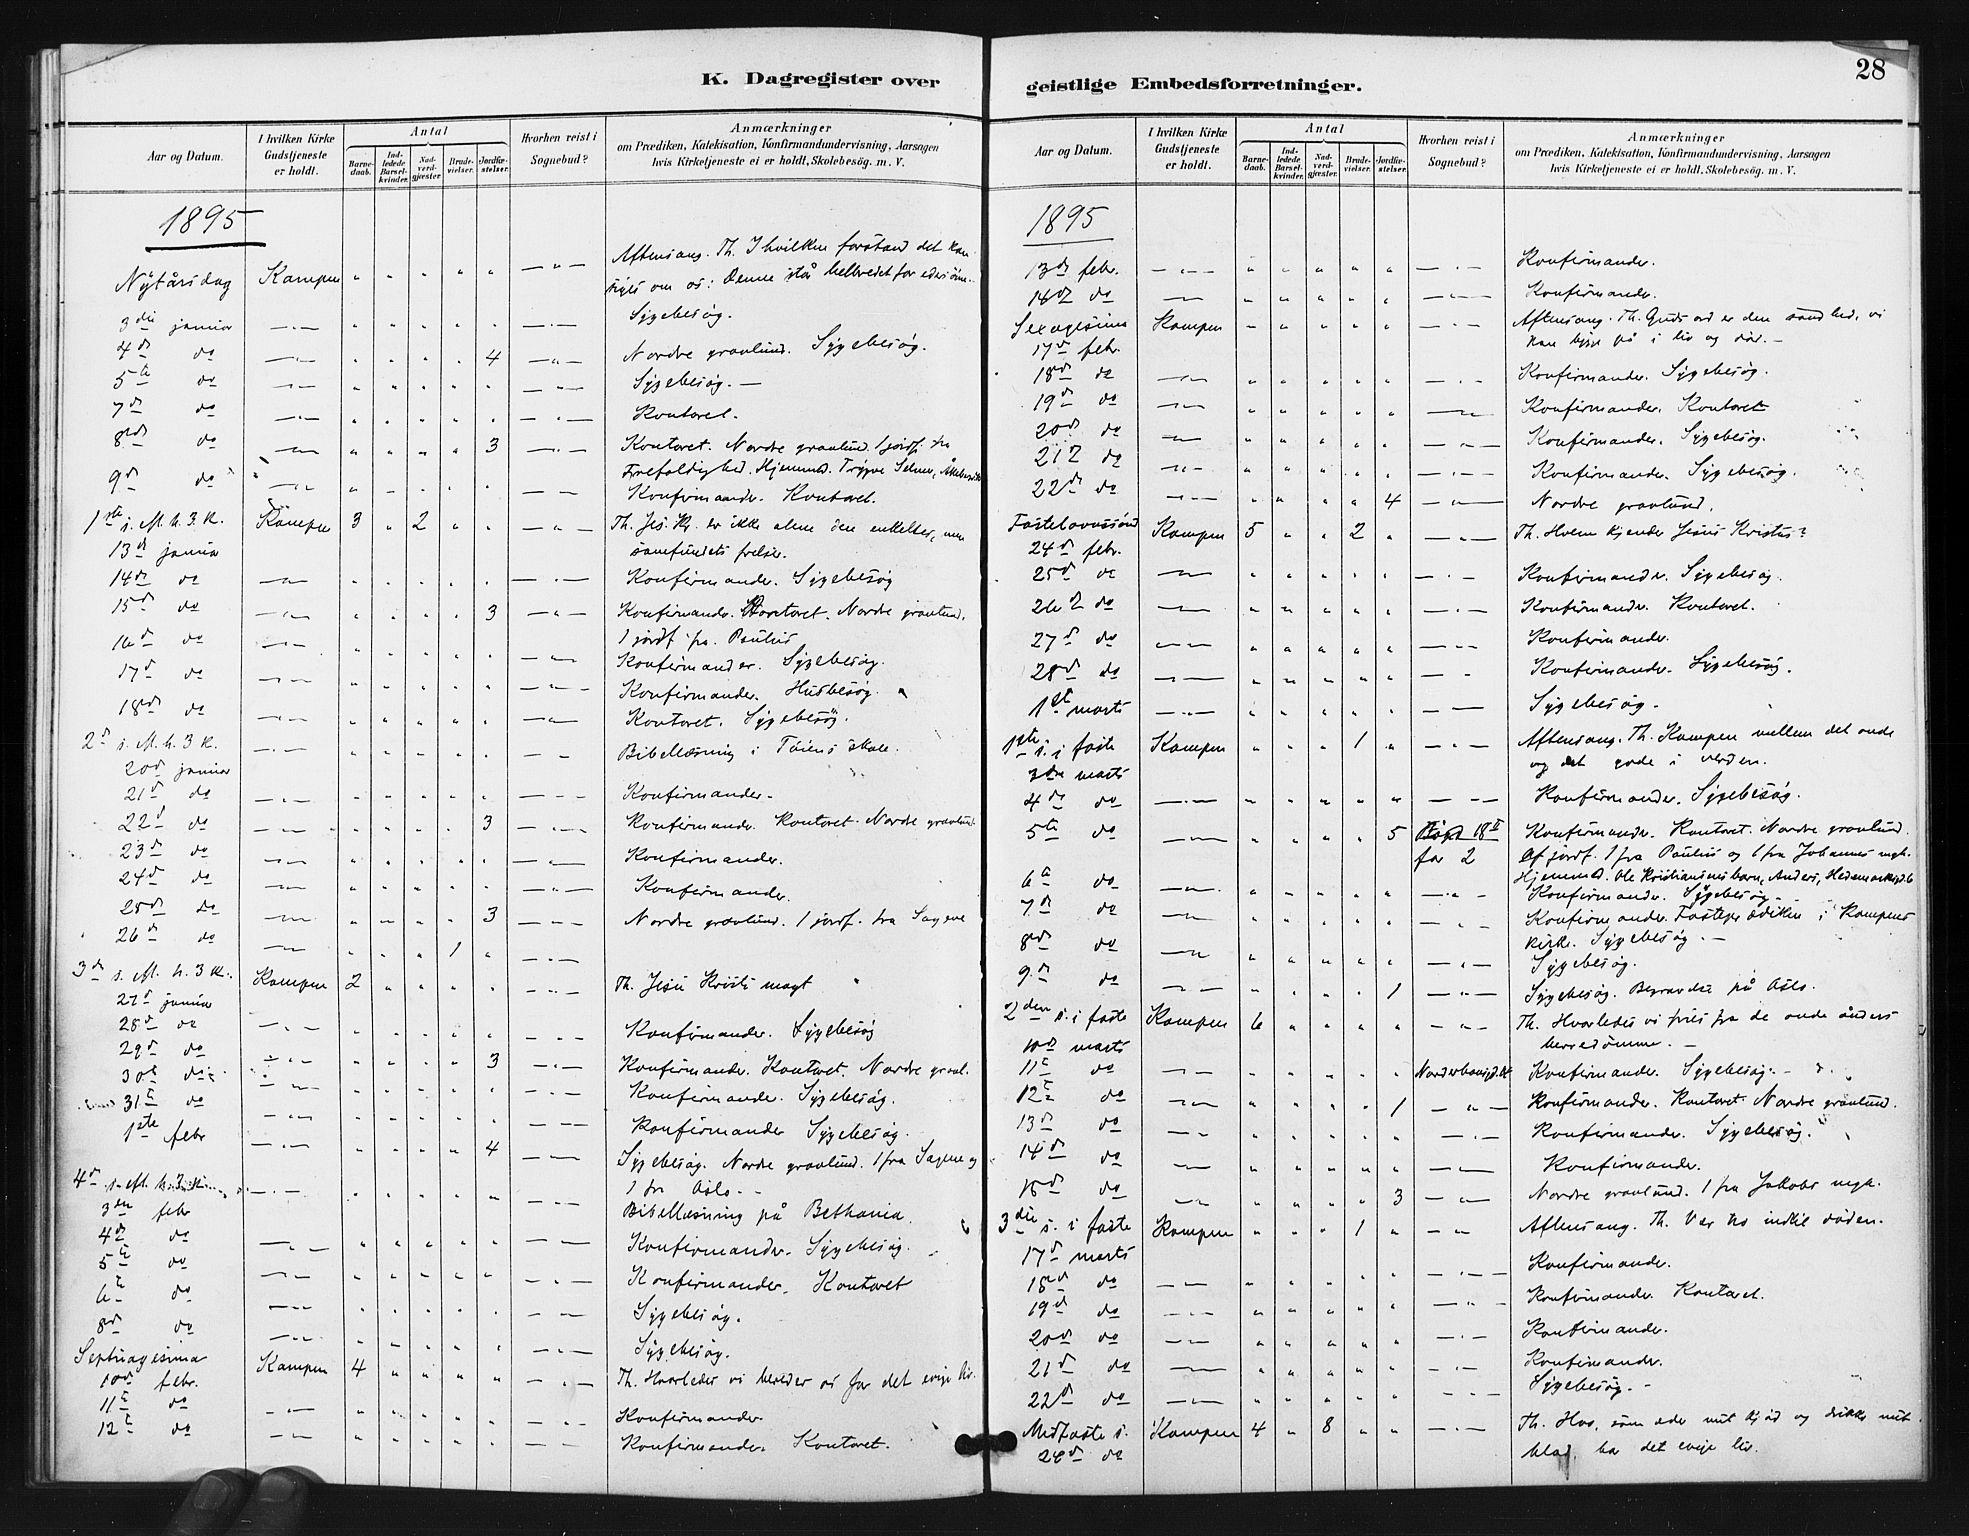 K. Dagregister over
Aar og Datum.
I hvilken Kirke Gudstjeneste er holdt.
Antal
Barnedaab.
Indledede Barselkvinder.
Nadverdgjæster
Brudevielser.
Jordfæstelser.
Hvorhen reist i Sognebud?
Anmærkninger
om Prædiken, Katekisation, Konfirmandundervisning, Aarsagen
hvis Kirketjeneste ei er holdt, Skolebesög. m. V.
1895
Nytårsdag Kampen Aftensang. Th. I hvilken forstand det kan
siges om os: Denne
3die januar Sygebesøg.
4d do 4 Nordre gravlund. Sygebesøg.
5te do Sygebesøg.
7d do Kontoret.
8de do 3 Kontoret. Nordre gravlund. 1 jordf. fra
Trefoldighed. Hjemmed. Trygve Selmer,
9d do Konfirmander. Kontoret.
1ste s. e. H. h. 3. K. Kampen 3 2 Th. Jes. Kr. er ikke alene den enkeltes, men
13d januar samfundets frelser.
14d do Konfirmander. Sygebesøg
15d do 3 Konfirmander. Kontoret. Nordre gravlund.
1 jordf. fra Paulus
16d do Konfirmander. Sygebesøg.
17d do Konfirmander. Husbesøg.
18de do Kontoret. Sygebesøg.
2d s. e. H. h. 3 K. Bibellæsning i Tøiens skole.
20d januar
21d do Konfirmander.
22d do 3 Konfirmander. Kontoret. Nordre gravlund
23d do Konfirmander.
24d do Konfirmander.
25d do 3 Nordre gravlund. 1 jordf. fra Sagene
26d do 1
3d s. e. H. h. 3 K. Kampen 2 Th. Jesu Kristi magt
27d januar
28d do Konfirmander. Sygebesøg
29d do 3 Konfirmander. Kontoret. Nordre gravl.
30te do Konfirmander. Sygebesøg.
31te do Konfirmander Sygebesøg.
1ste febr 4 Sygebesøg. Nordre gravlund. 1 fra Sagene og
1 fra Oslo.
4d s. e. H. h. 3 K. Bibellæsning på Bethania.
3die febr
4d do Konfirmander. Sygebesøg.
5te do Konfirmander. Kontoret
6te do Sygebesøg.
8de do Sygebesøg.
Septuagesima Kampen 4 Th. Hvorledes vi bereder os for det evige liv.
10de febr.
11te do Konfirmander.
12te do Konfirmander. Kontoret.
geistlige Embedsforretninger.
28
Aar og Datum.
I hvilken Kirke Gudstjeneste er holdt.
Antal
Barnedaab.
Indledede Barselkvinder.
Nadverdgjæster
Brudevielser.
Jordfæstelser.
Hvorhen reist i Sognebud?
Anmærkninger
om Prædiken, Katekisation, Konfirmandundervisning, Aarsagen
hvis Kirketjeneste ei er holdt, Skolebesög. m. V.
1895
13de febr. Konfirmander.
14d do Konfirmander.
Sexagesima Kampen Aftensang. Th. Guds ord er den sandhed, vi
17d febr. kan bygge på i liv og død.
18de do Konfirmander. Sygebesøg.
19d do Konfirmander. Kontoret
20de do Konfirmander. Sygebesøg.
21d do Konfirmander. Sygebesøg.
22d do 4 Nordre gravlund.
Fastelavnssønd Kampen 5 2 Th. Hvem kjender Jesus Kristus?
24d febr.
25d do Konfirmander. Sygebesøg.
26d do Konfirmander. Kontoret.
27d do Konfirmander.
28de do Konfirmander. Sygebesøg.
1ste marts Sygebesøg.
1ste s. i faste Kampen 1 Aftensang. Th. Kampen mellem det onde
3die marts og det gode i verden.
4d do Konfirmander. Sygebesøg.
5te do 5 18 Konfirmander. Kontoret. Nordre gravlund.
for 2 Af jordf. 1 fra Paulus og 1 fra Johannes mgh.
Hjemmed. Ole Kristiansens barn, Anders,
6te do Konfirmander. Sygebesøg.
7d do Konfirmander. Fasteprædiken i Kampens
kirke. Sygebesøg.
8de do Sygebesøg.
9d do 1 Sygebesøg. Begravelse på Oslo.
2den s. i faste Kampen 6 Th. Hvorledes vi fries fra de onde ånders
10de marts herredømme.
11te do Konfirmander. Sygebesøg.
12te do 1 Konfirmander. Kontoret. Nordre gravlund.
13d do Konfirmander. Sygebesøg.
14d do Konfirmander.
15d do 3 Nordre gravlund. 1 fra Jakobs mgh.
3die s. i faste Kampen 1 Aftensang. Th. Vær tro indtil døden.
17d marts
18de do Konfirmander.
19d do Konfirmander Kontoret.
20de do Konfirmander.
21d do Konfirmander.
22d do Sygebesøg.
Midfaste s. Kampen 4 8 Th. Hvo, som æder mit kjød og drikker mit
24d do blod, har det evige liv.